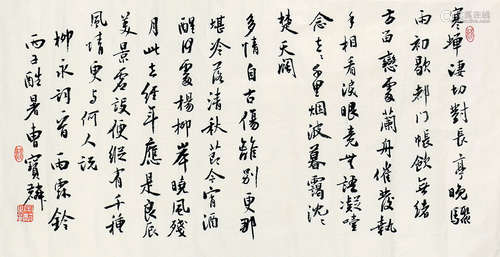 寒蟬淒切對長亭晚驟
雨初歇都門帳飲無緒
方留戀處蘭舟催發執
手相看淚眼竟無語凝噎
念去去千里烟波暮靄沈沈
楚天闊
多情自古傷離別更那
堪冷落清秋節今宵酒
醒何處楊柳岸曉風殘
月此去經年應是良辰
美景虛設便縱有千種
風情更與何人說
柳永詞首雨霖鈴
丙子酷暑曹寶麟